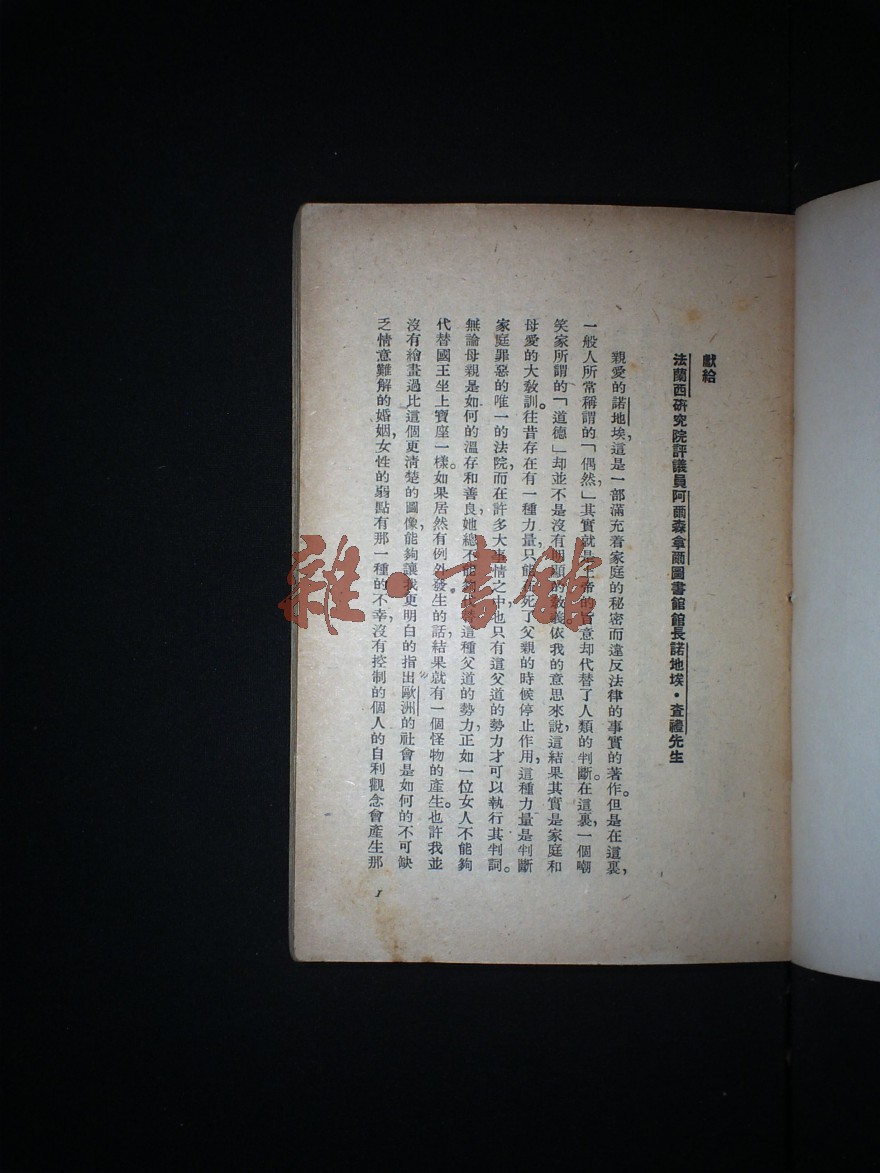 獻給
法蘭西研究院評議員阿爾森拿爾圖書館館長諾地埃·查禮先生
親愛的諾地埃，這是一部滿充着家庭的秘密而違反法律的事實的著作。但是在這裏，
一般人所常稱謂的「偶然，」其實就是上帝的旨意却代替了人類的判斷。在這裏，一個嘲
笑家所謂的「道德」却並不是沒有明顯的教義。依我的意思來說，這結果其實是家庭和
母愛的大敎訓。往昔存在有一種力量，只能在死了父親的時候停止作用，這種力量是判斷
家庭罪惡的唯一的法院，而在許多大事情之中也只有這父道的勢力才可以執行其判詞。
無論母親是如何的溫存和善良，她總不能夠代替這種父道的勢力，正如一位女人不能夠
代替國王坐上寶座一樣。如果居然有例外發生的話，結果就有一個怪物的產生。也許我並
沒有繪畫過比這個更清楚的圖像，能夠讓我更明白的指出歐洲的社會是如何的不可缺
乏情意難解的婚姻，女性的弱點有那一種的不幸，沒有控制的個人的自利觀念會產生那
1
雜·書館